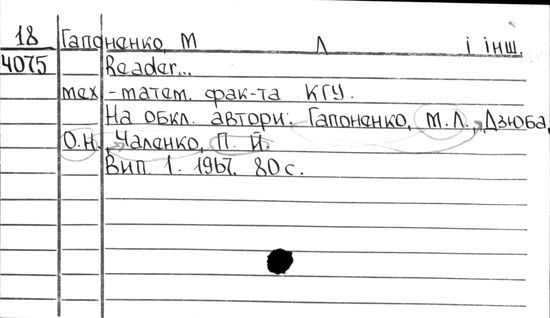 18 Гапоненко, М Л і інш.
4075 Reader...
мех-матем. фак-та КГУ.
На обкл. автори: Гапоненко, М.Л., Дзюба,
О.Н., Чаленко, П. Й.
Вип 1. 1967. 80 с.